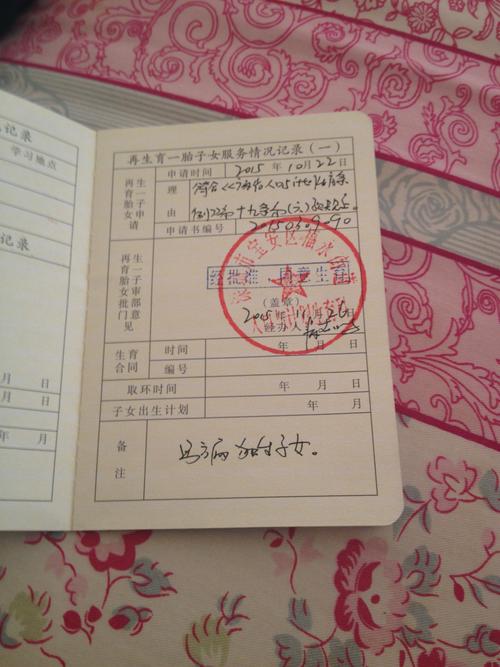 记录
学习地点
记录
月 日
月 日
月 日
月 日
再生育一胎子女服务情况记录(一)
再生育一胎子女申请
申请时间 2015 年 10 月 22 日
理由 符合《广东省人口与计划生育条
例》第十九条第(六)
申请书编号 2015030990
再生育一胎子女审批部门意见
经批准 同意生育
(盖章)
2015 年 11 月 26 日
经办人
市宝安区福永
生育合同 时间 年 月 日
编号
取环时间 年 月 日
子女出生计划 年 月 日
备注
子女。